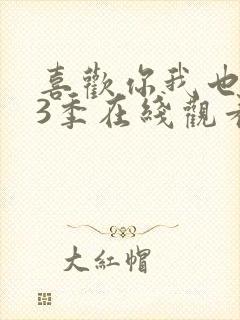 喜歡你我也
3季在綫觀看
大紅帽